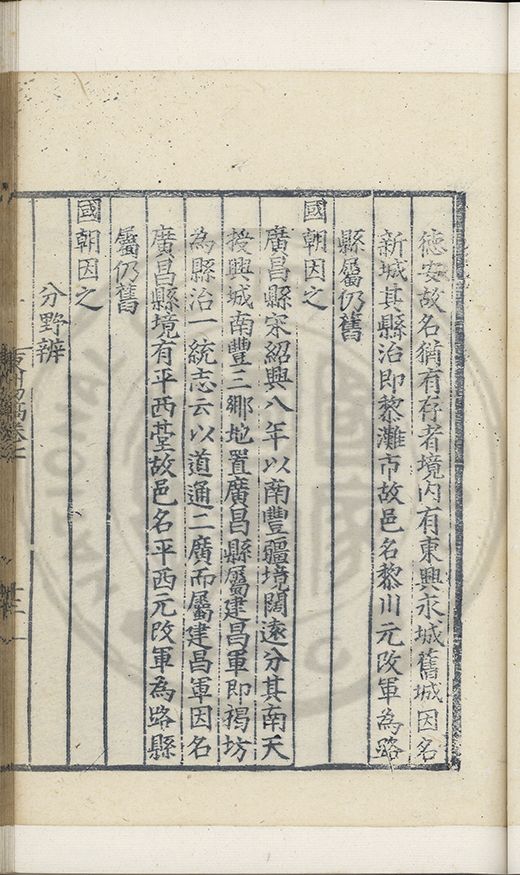 德安故名猶有存者境內有東興永城舊城因名
新城其縣治即黎灘市故邑名黎川元改軍為路
縣屬仍舊
國朝因之
廣昌縣宋紹興八年以南豐疆境闊遠分其南天
授興城南豐三鄉地置廣昌縣屬建昌軍即揭坊
為縣治一統志云以道通二廣而屬建昌軍因名
廣昌縣境有平西臺故邑名平西元改軍為路縣
屬仍舊
國朝因之
分野辨